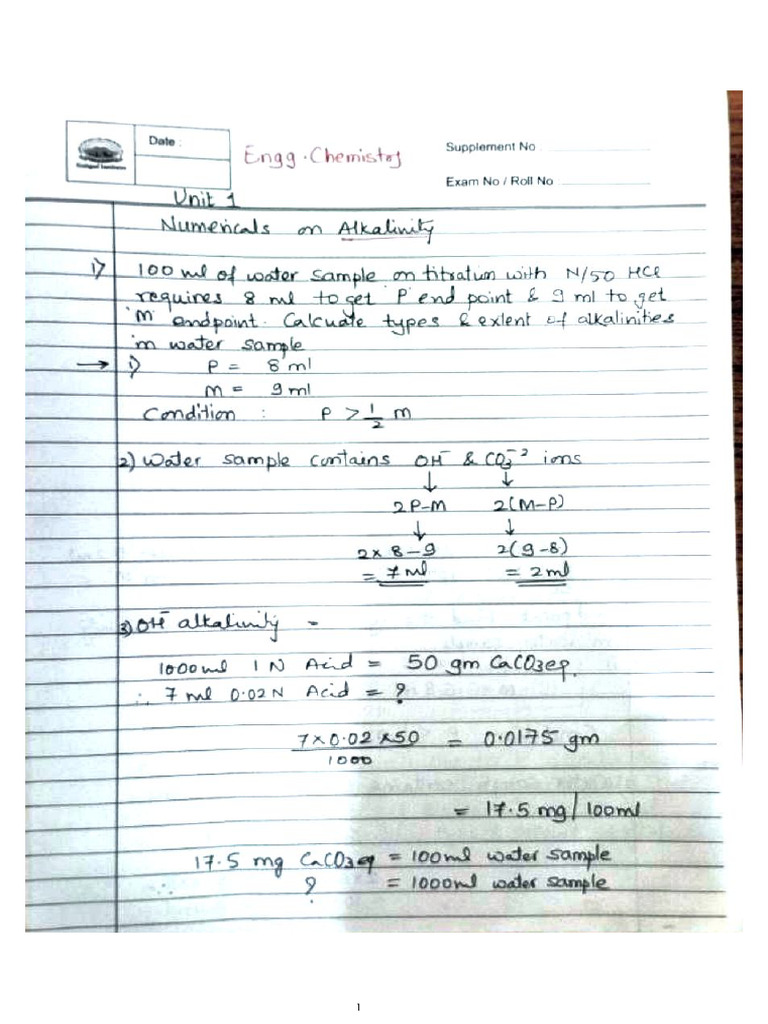 Date :
Engg. Chemistry
Supplement No
Exam No / Roll No
Unit 1
Numericals on Alkalinity
1) 100 ml of water sample on titration with N/50 HCl
requires 8 ml to get 'P' end point & 9 ml to get
'M' endpoint. Calcuate types & extent of alkalinities
in water sample
→ 1) P = 8 ml
M = 9 ml
Condition : P > 1/2 M
2) Water sample contains OH⁻ & CO₃⁻² ions
↓ ↓
2P-M 2(M-P)
↓ ↓
2 × 8 - 9 2(9-8)
= 7 ml = 2 ml
3) OH⁻ alkalinity =
1000 ml 1 N Acid = 50 gm CaCO3 eq.
∴ 7 ml 0.02 N Acid = ?
7 × 0.02 × 50 / 1000 = 0.0175 gm
= 17.5 mg / 100ml
17.5 mg CaCO3 eq = 100 ml water sample
∴ ? = 1000 ml water sample
1